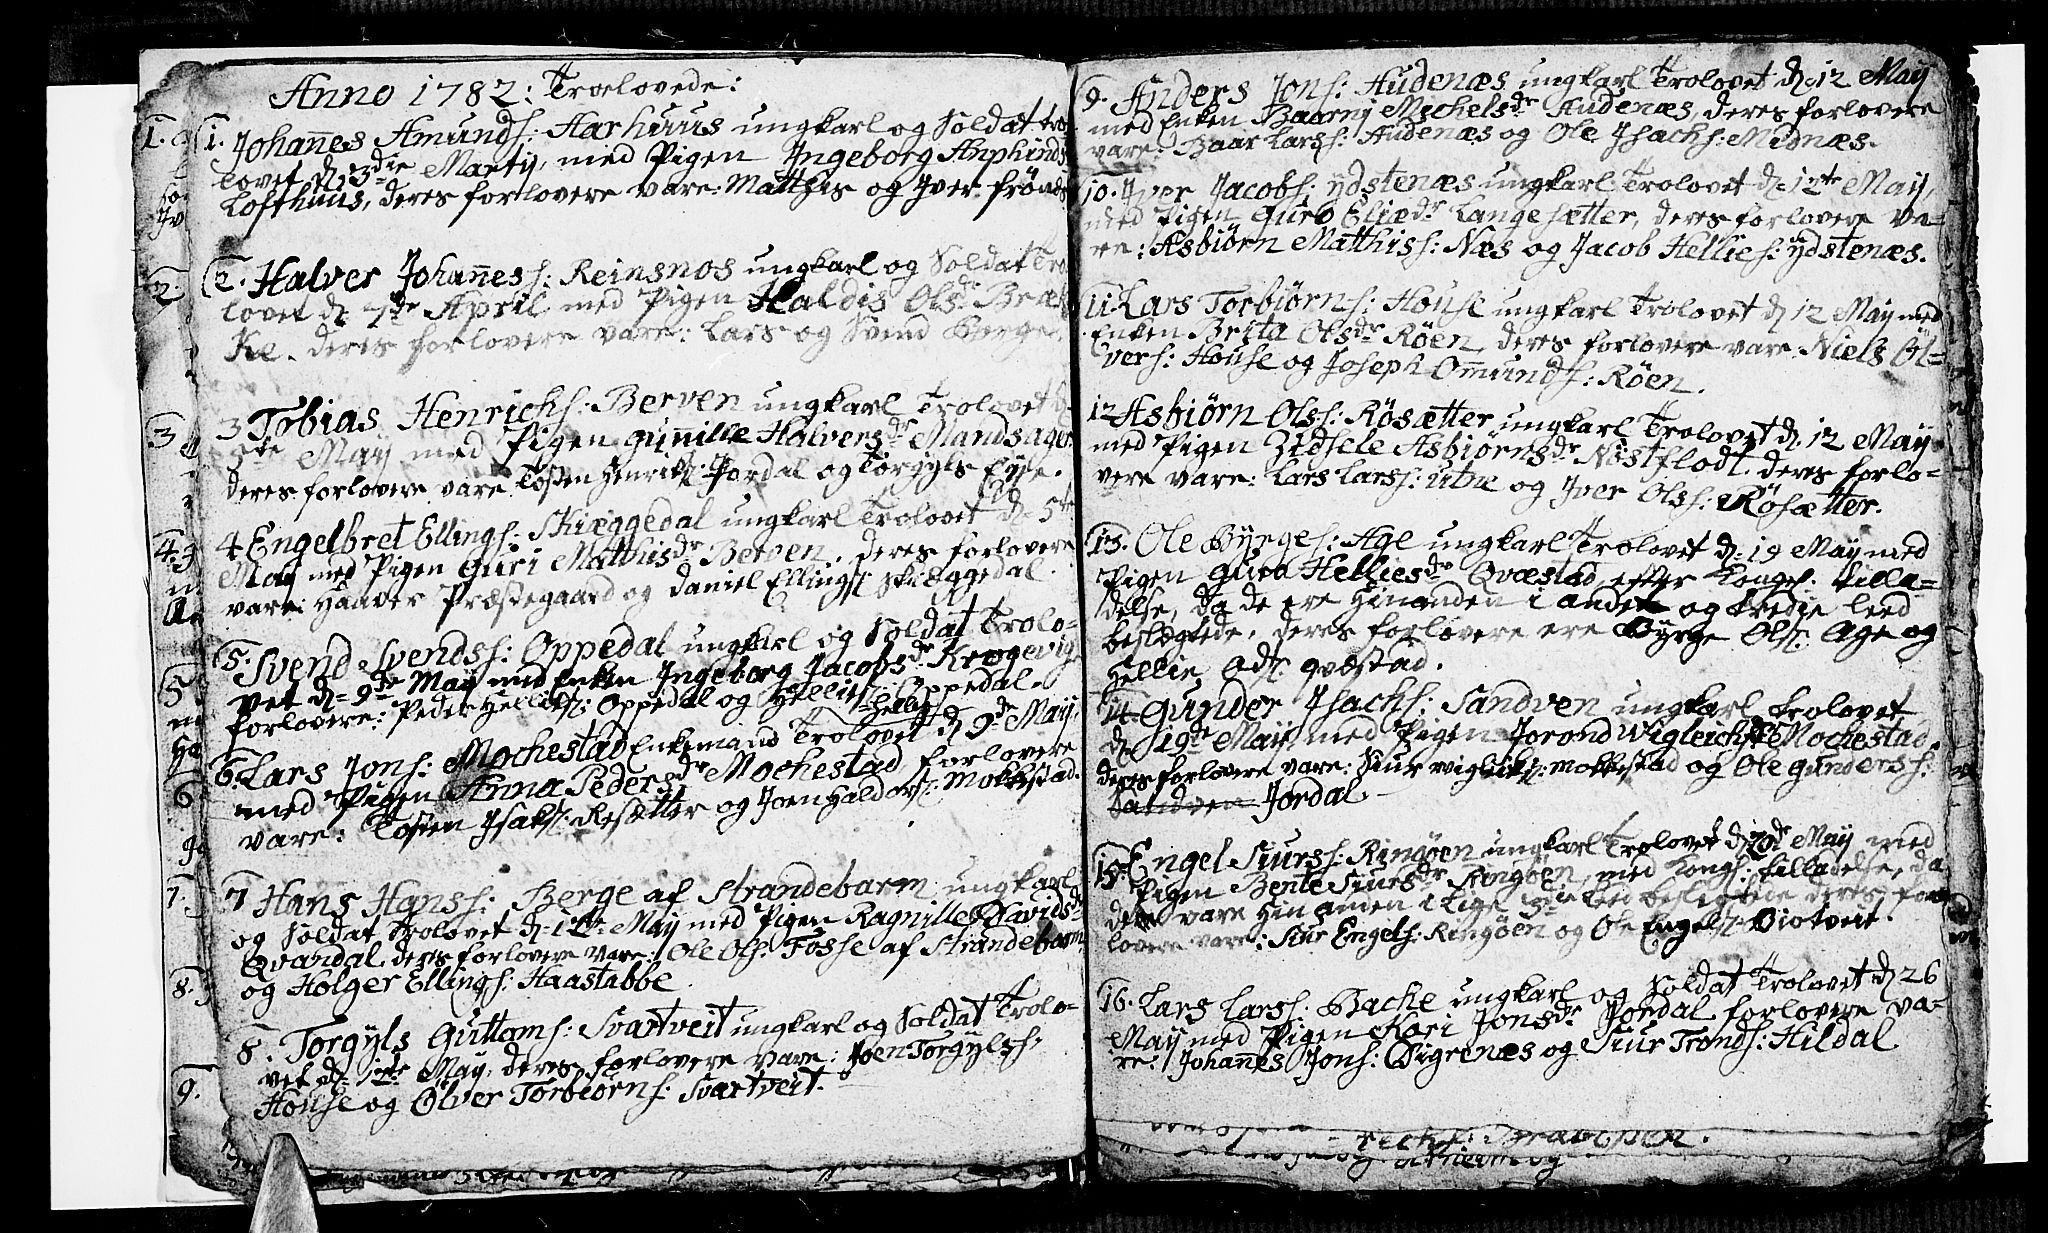 Anno 1782: Trolovede:
1. Johañes Amunds: Aarhuus ungkarl og Soldat tro-
lovet d. 3die Martij, med Pigen Ingeborg Anphinds
Lofthuus, deres forlovere vare: Matthis og Iver
2. Halver Johañes s: Reinsnos ungkarl og Soldat Tro
lovet d. 7de April med Pigen Haldis Olsdr Bræk
Ke. deres forlovere vare: Lars og Svend Børge
3 Tobias Henrichs: Berven ungkarl Trolovet d.
5te Maij med Pigen Guñille Halversdr Mandsager
deres forlovere vare Tosten Henriks: Jordal og Torgyls Eyse.
4 Engelbret Ellings: Skieggedal ungkarl Trolovet d. 5te
Maij med Pigen Guri Matthisdr Berven. deres forlovere
vare: Haaver Præstegaard og Daniel Ellings Skieggedal.
5. Svend Svends: Oppedal ungkarl og Soldat Trolo-
vet d. 9de Maij med Enken Ingeborg Jacobsdr Krogevig
forlovere: Peder Hellies: Oppedal og Hellies: Oppedal.
6. Lars Jons: Mochestad Enkemand Trolovet d. 9de Maij
med Pigen Anna Pedersdr Mochestad forlovere
vare: Tosten Isaks: Resætter og Joen Haldors: Mokestad.
7 Hans Hans s: Berge af Strandebarm ungkarl
og Soldat Trolovet d. 12te Maij med Pigen Ragnille Davidsdr
Qvandal deres forlovere vare: Ole Ols: Fosse af Strandebarm
og Holger Ellings: Haastabbe
8. Torgyls Guttoms: Svartveit ungkarl og Soldat Trolo-
vet d. 12te Maij, deres forlovere vare: Joen Torgyls s:
House og Ølver Torbiorns: Svartveit.
9. Anders Jons: Audenæs ungkarl Trolovet d. 12 Maij
med Enken Baarni Michelsdr Audenæs, deres forlovere
vare: Baar Lars s: Audenæs og Ole Isachs: Midnæs.
10. Iver Jacobs: Ydstenæs ungkarl Trolovet d. 12te Maij,
med Pigen Guro Eliædr Langesætter, deres forlovere va-
re: Asbiørn Matthis s: Næs og Jacob Hellie s: Ydstenæs.
11. Lars Torbiørns: House ungkarl Trolovet d. 12 Maij med
Enken Brita Olsdr Røen deres forlovere vare Niels Øl-
vers: House og Joseph Omunds: Røen.
12 Asbiørn Ols s: Røsætter ungkarl Trolovet d. 12 Maij
med Pigen Zidsele Asbiørnsdr Nøstflodt. deres forlo-
vere vare: Lars Lars s: Utne og Iver Ols s: Røsætter.
13. Ole Byrges: Age ungkarl Trolovet d. 19 Maij med
Pigen Guro Helliesdr Qvæstad efter Kongel. Tilla-
delse, da de ere hinanden i andet og tredie leed
beslægtede. deres forlovere ere Byrge Ols: Age og
Hellie Ads: Qvæstad.
14 Gunder Isachs: Sandven ungkarl Trolovet
d. 19de Maij med Pigen Jorond Wigleichsdr Mochestad
deres forlovere vare: Siur Wigliks: Mokkestad og Ole Gunders s:
Sandven Jordal
15. Engel Siurs s: Ringøen ungkarl Trolovet d. 20de Maij med
Pigen Bente Siursdr Ringøen, med Kongl: tilladelse, da
de vare hinanden i lige 3die leed beslegtede deres for-
lovere vare: Siur Engels: Ringøen og Ole Engels: Biotveit.
16. Lars Lars s: Backe ungkarl og Soldat Trolovet d. 26
Maij med Pigen Kari Jonsdr Jordal forlovere va-
re: Johañes Jons: Digrenæs og Siur Tronds: Hildal